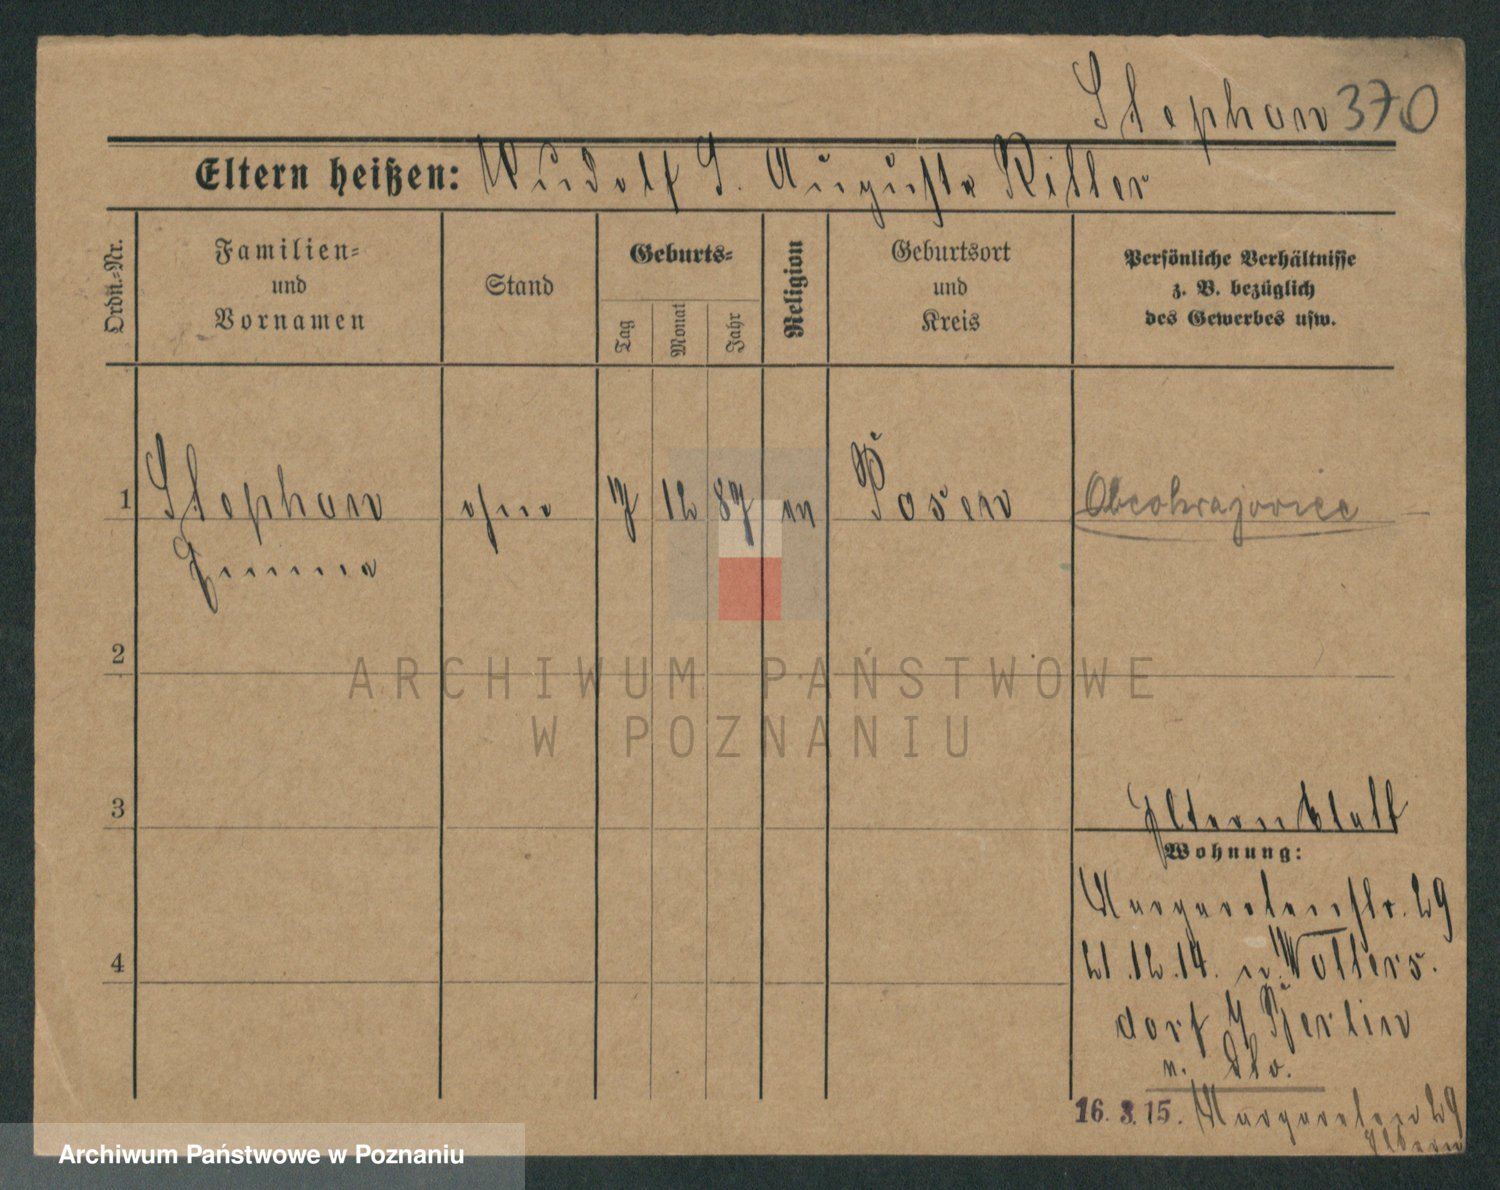 Stephan 370
Eltern heißen: Rudolf S. Auguste Ritter
Ordn.-Nr.
Familien-
und
Vornamen
Stand
Geburts-
Tag
Monat
Jahr
Religion
Geburtsort
und
Kreis
Persönliche Verhältnisse
z. B. bezüglich
des Gewerbes usw.
1 Stephan ohne 7 12 87 Posen
Emma
2
ARCHIWUM PAŃSTWOWE
W POZNANIU
3
Elternblatt
Wohnung:
Margaretenstr. 29
4
21.12.14. n. Wolters-
dorf Berlin
n.
16. 3. 15. Margareten 29
Eltern
Archiwum Państwowe w Poznaniu